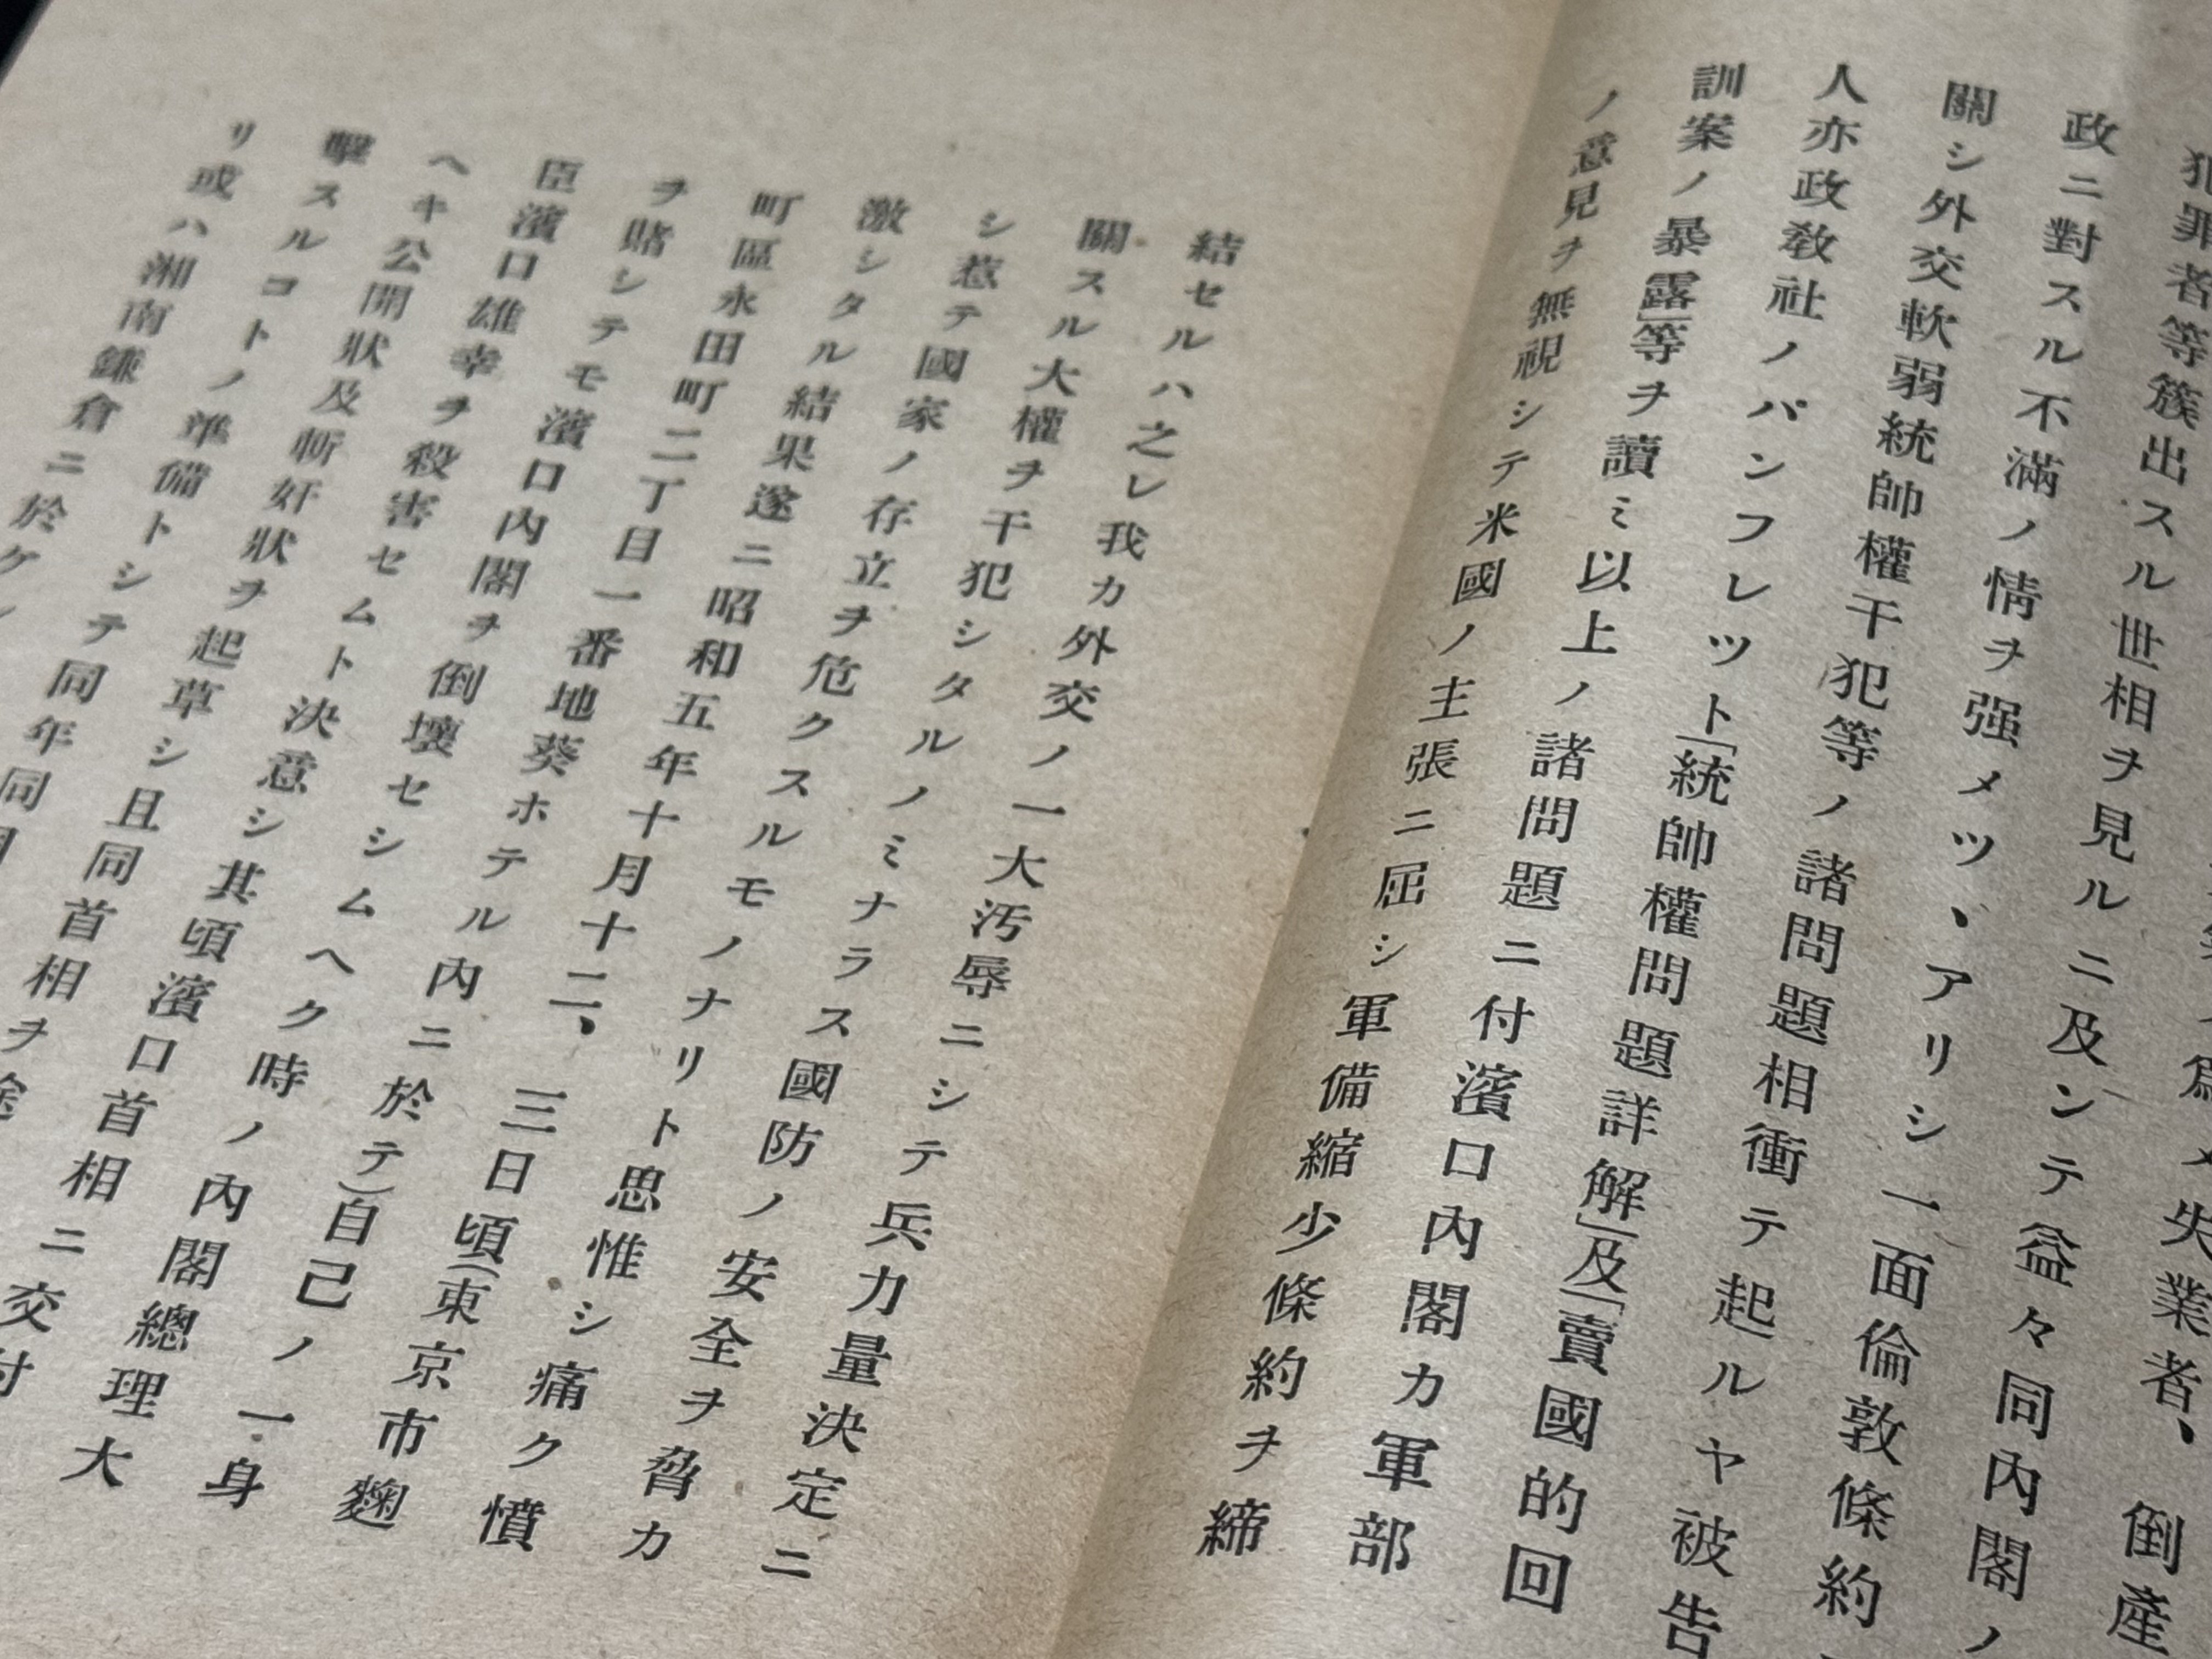 犯罪者等簇出スル世相ヲ見ルニ及ンテ益々同內閣ノ
政ニ對スル不滿ノ情ヲ强メツヽアリシ一面倫敦條約
關シ外交軟弱統帥權干犯等ノ諸問題相衝テ起ルヤ被告
人亦政敎社ノパンフレツト「統帥權問題詳解」及「賣國的回
訓案ノ暴露」等ヲ讀ミ以上ノ諸問題ニ付濱口內閣カ軍部
ノ意見ヲ無視シテ米國ノ主張ニ屈シ軍備縮少條約ヲ締
結セルハ之レ我カ外交ノ一大汚辱ニシテ兵力量決定ニ
關スル大權ヲ干犯シタルノミナラス國防ノ安全ヲ脅カ
シ惹テ國家ノ存立ヲ危クスルモノナリト思惟シ痛ク憤
激シタル結果遂ニ昭和五年十月十二、三日頃(東京市麴
町區永田町二丁目一番地葵ホテル內ニ於テ)自己ノ一身
ヲ賭シテモ濱口內閣ヲ倒壞セシムヘク時ノ內閣總理大
臣濱口雄幸ヲ殺害セムト決意シ其頃濱口首相ニ交付
ヘキ公開狀及斬奸狀ヲ起草シ且同首相ヲ途
擊スルコトノ準備トシテ同年同月
リ或ハ湘南鎌倉ニ於ケル